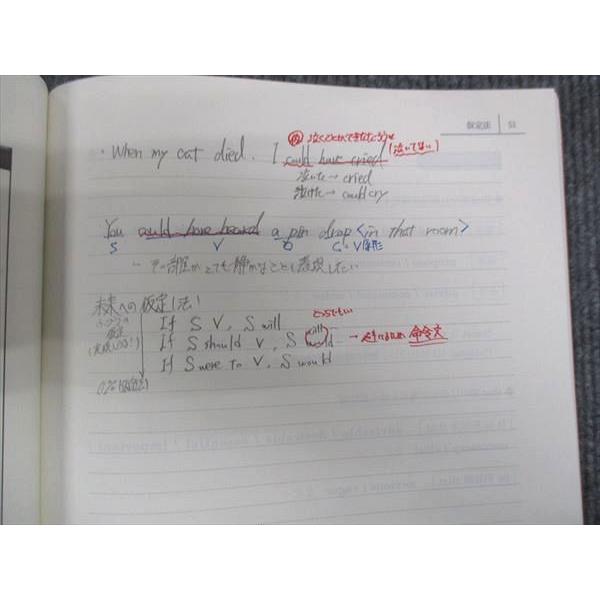 仮定法 51
泣くことができただろうに
・When my cat died. I could have cried (泣いてない)
泣いた→ cried
泣けた→ could cry
You could have heard a pin drop <in that room>
S V O C=V原形
その部屋がとても静かなことを表現したい
未来への仮定法!
If S V, S will
どっちでもいい
If S should V, S will would → 命令文
If S were to V, S would